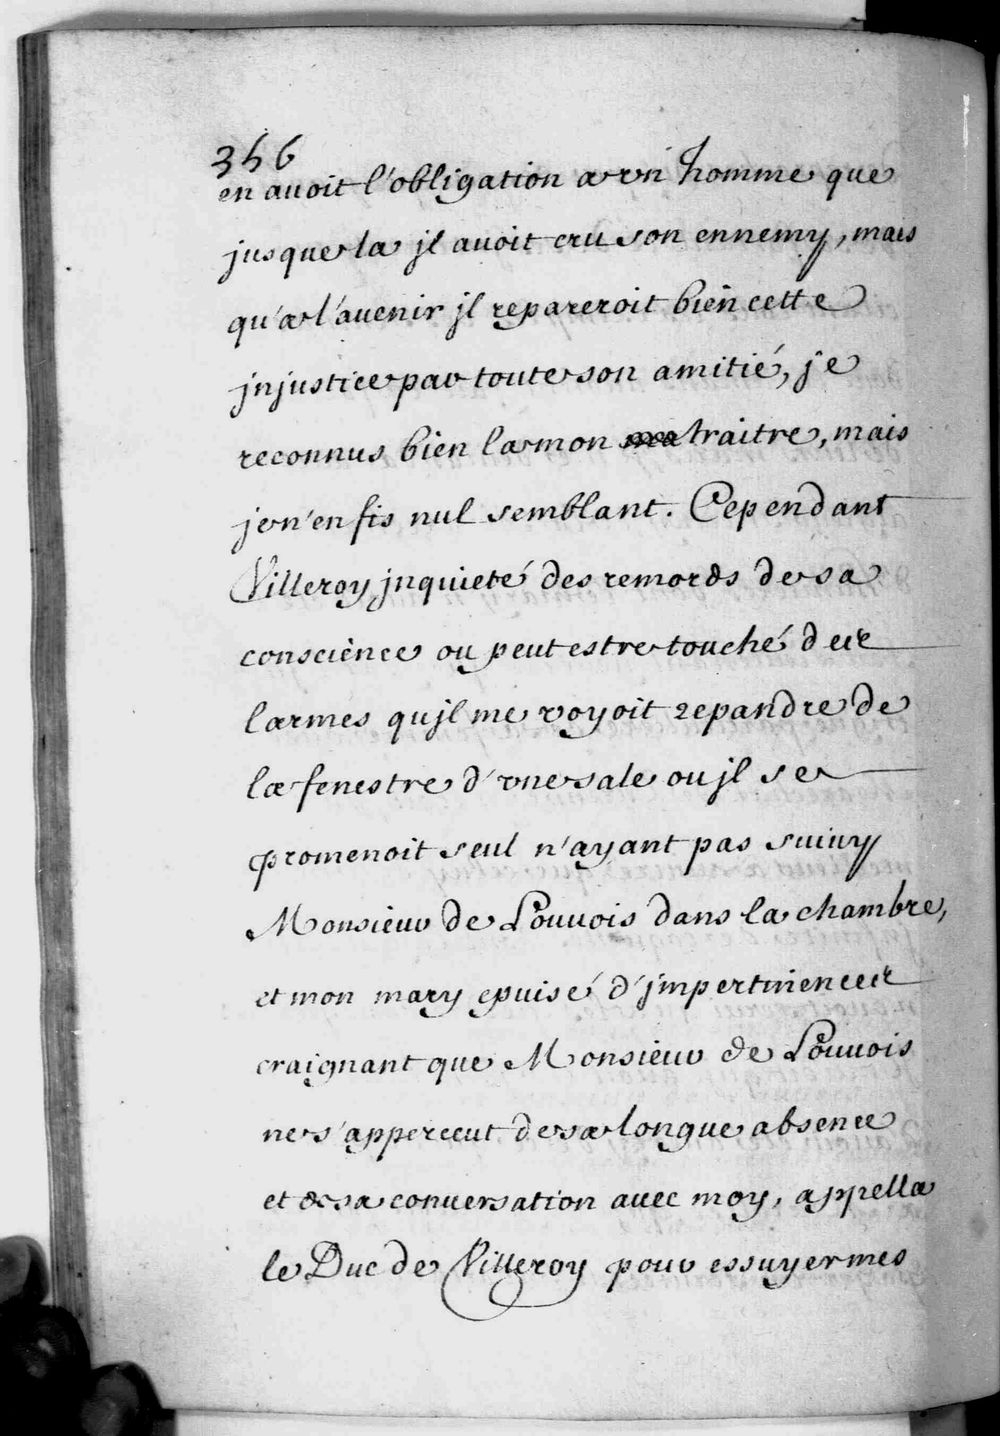 356
en avoit l'obligation a vn homme que
jusque la jl avoit cru son ennemy, mais
qu'a l'avenir jl repareroit bien cette
jnjustice par toute son amitié, je
reconnus bien la mon traitre, mais
je n'en fis nul semblant. Cependant
Villeroy jnquieté des remords de sa
conscience ou peut estre touché des
larmes qu jl me voyoit repandre de
la fenestre d'vne sale ou jl se
promenoit seul n'ayant pas suivy
Monsieur de Louvois dans la chambre,
et mon mary epuisé d'jmpertinences
craignant que Monsieur de Louvois
ne s'apperceut de sa longue absence
et de sa conversation avec moy, appella
le Duc de Villeroy pour essuyer mes